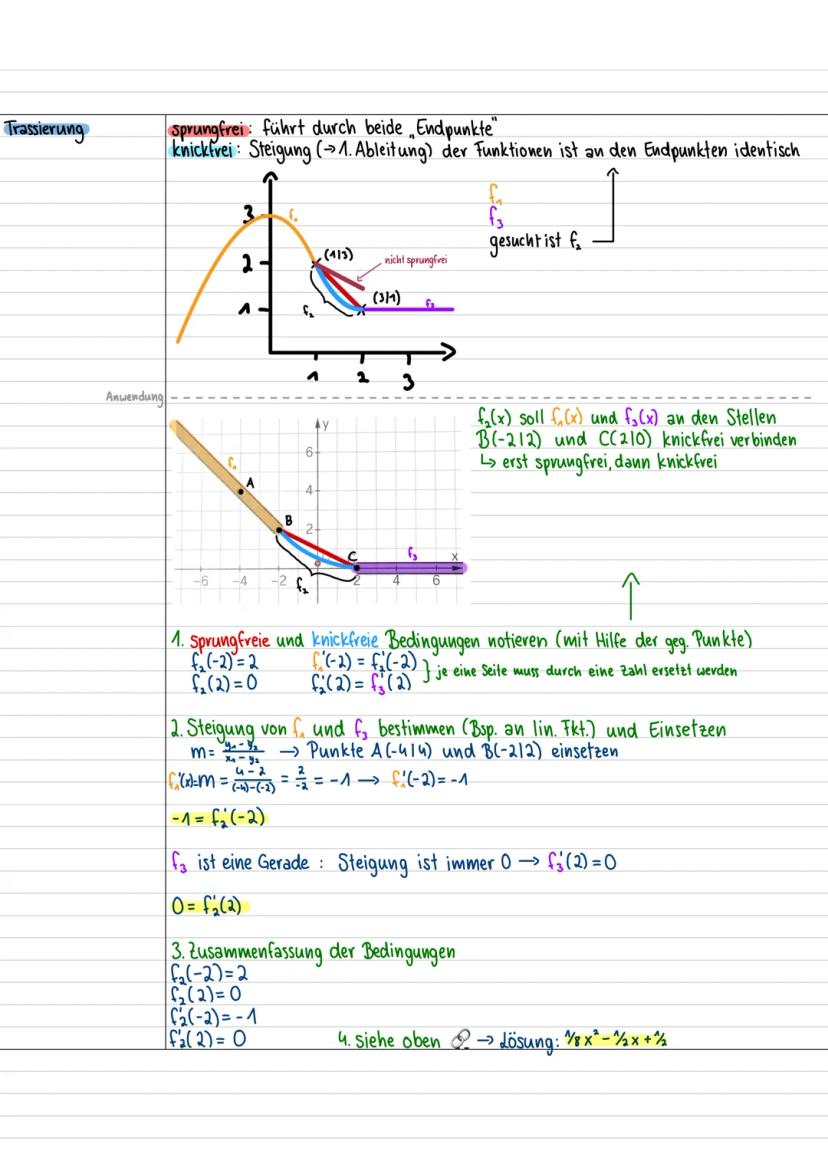 Trassierung
sprungfrei: führt durch beide „Endpunkte"
knickfrei: Steigung (→1. Ableitung) der Funktionen ist an den Endpunkten identisch
f₁
f₃
gesucht ist f₂
3
f₁
2
(1|3)
nicht sprungfrei
1
(3|1)
f₂
f₃
1 2 3
Anwendung
f₂(x) soll f₁(x) und f₃(x) an den Stellen
B(-2|2) und C(2|0) knickfrei verbinden
↳ erst sprungfrei, dann knickfrei
y
6
f₁
A
4
B
2
C
f₃
x
0
-6 -4 -2 2 4 6
f₂
1. sprungfreie und knickfreie Bedingungen notieren (mit Hilfe der geg. Punkte)
f₂(-2)=2 f₁'(-2) = f₂'(-2)
f₂(2)=0 f₂'(2) = f₃'(2) } je eine Seite muss durch eine Zahl ersetzt werden
2. Steigung von f₁ und f₃ bestimmen (Bsp. an lin. Fkt.) und Einsetzen
m= (y₁-y₂)/(x₁-y₂) → Punkte A(-4|4) und B(-2|2) einsetzen
f₁'(x)=m = (4-2)/((-4)-(-2)) = 2/-2 = -1 → f₁'(-2)=-1
-1 = f₂'(-2)
f₃ ist eine Gerade : Steigung ist immer 0 → f₃'(2)=0
0= f₂'(2)
3. Zusammenfassung der Bedingungen
f₂(-2)=2
f₂(2)=0
f₂'(-2)=-1
f₂'(2)= 0 4. siehe oben 🔗 → Lösung: 1/8 x² - 1/2 x + 1/2